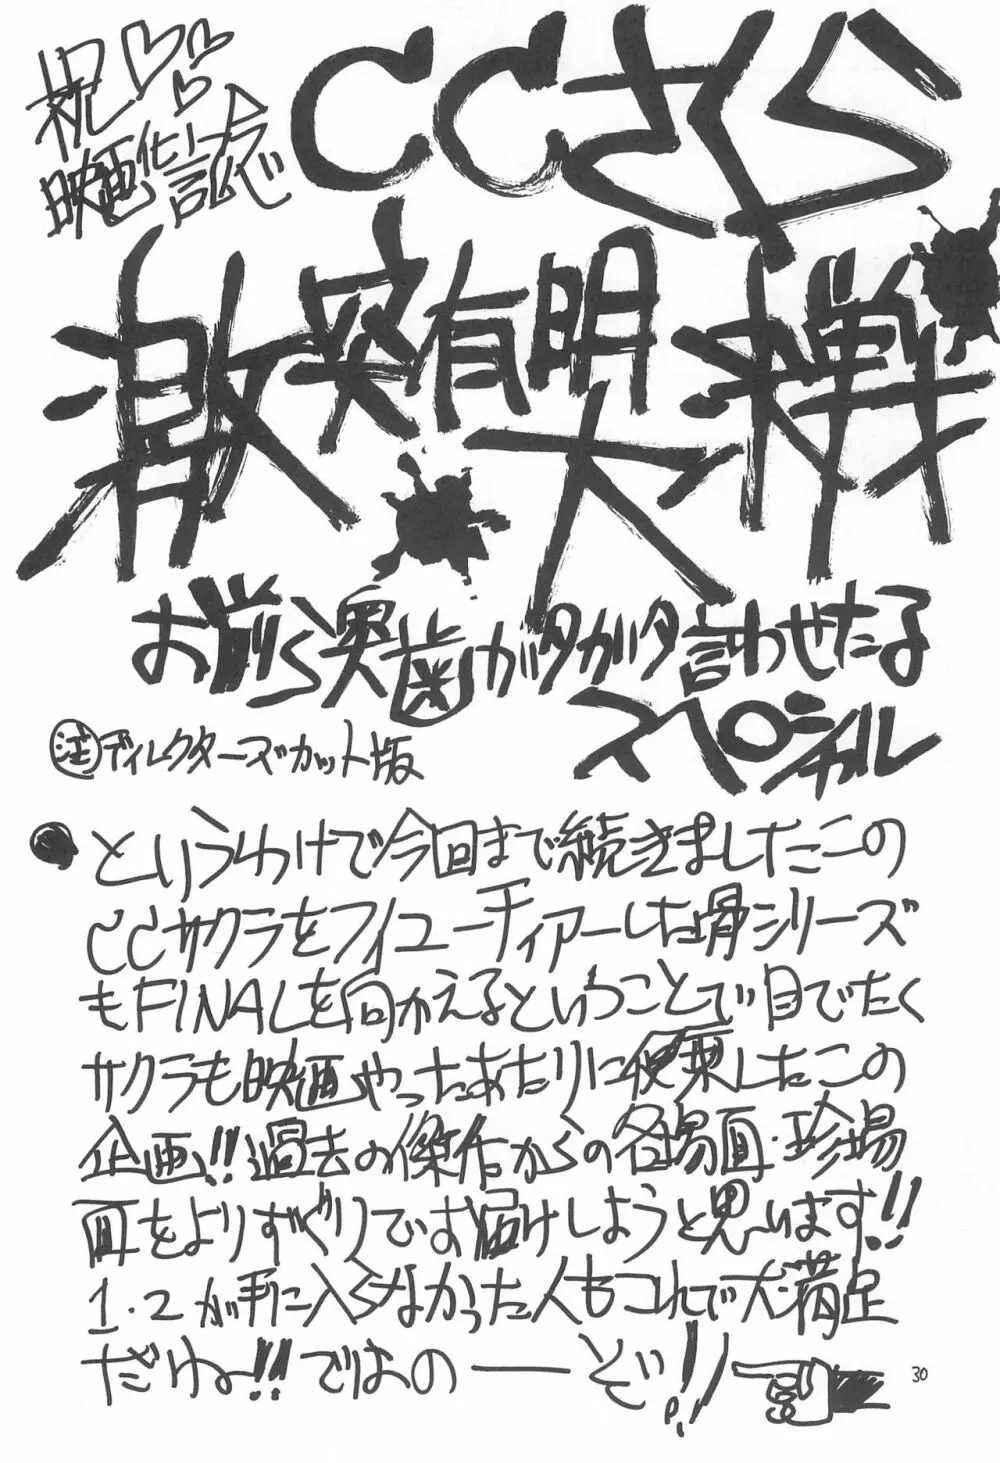 祝♡♡♡
映画化!!て訳で
CCさくら
激突有明
大決戦
お前ら奥歯ガタガタ言わせたる
スペシャル
㊟ディレクターズカット版
●というわけで今回まで続きましたこの
CCサクラをフィーチュアーした骨シリーズ
もFINALを向かえるということで目でたく
サクラも映画やったあたりに便乗したこの
企画!!過去の傑作からの各場面・珍場
面をよりすぐりでお届けしようと思います!!
1・2が手に入らなかった人もコれで大満足
だわー!!ではおの——ぞ!!
30